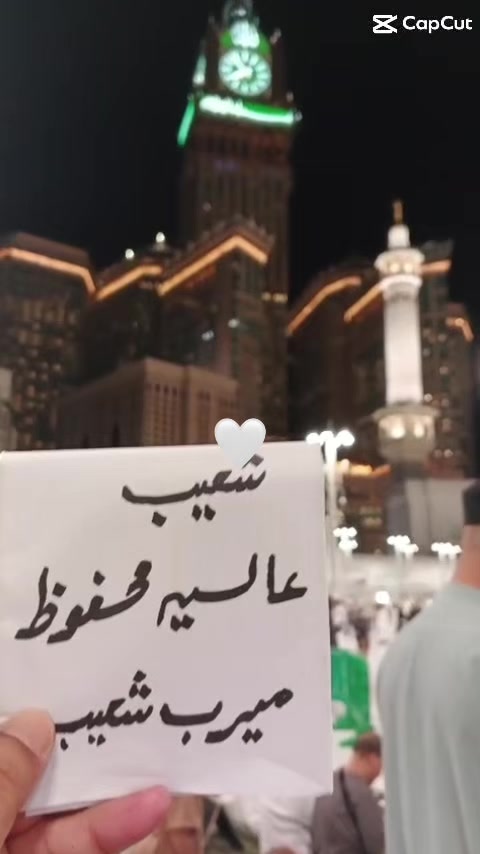 CapCut
شعیب
عالسیہ محفوظ
میرب شعیب